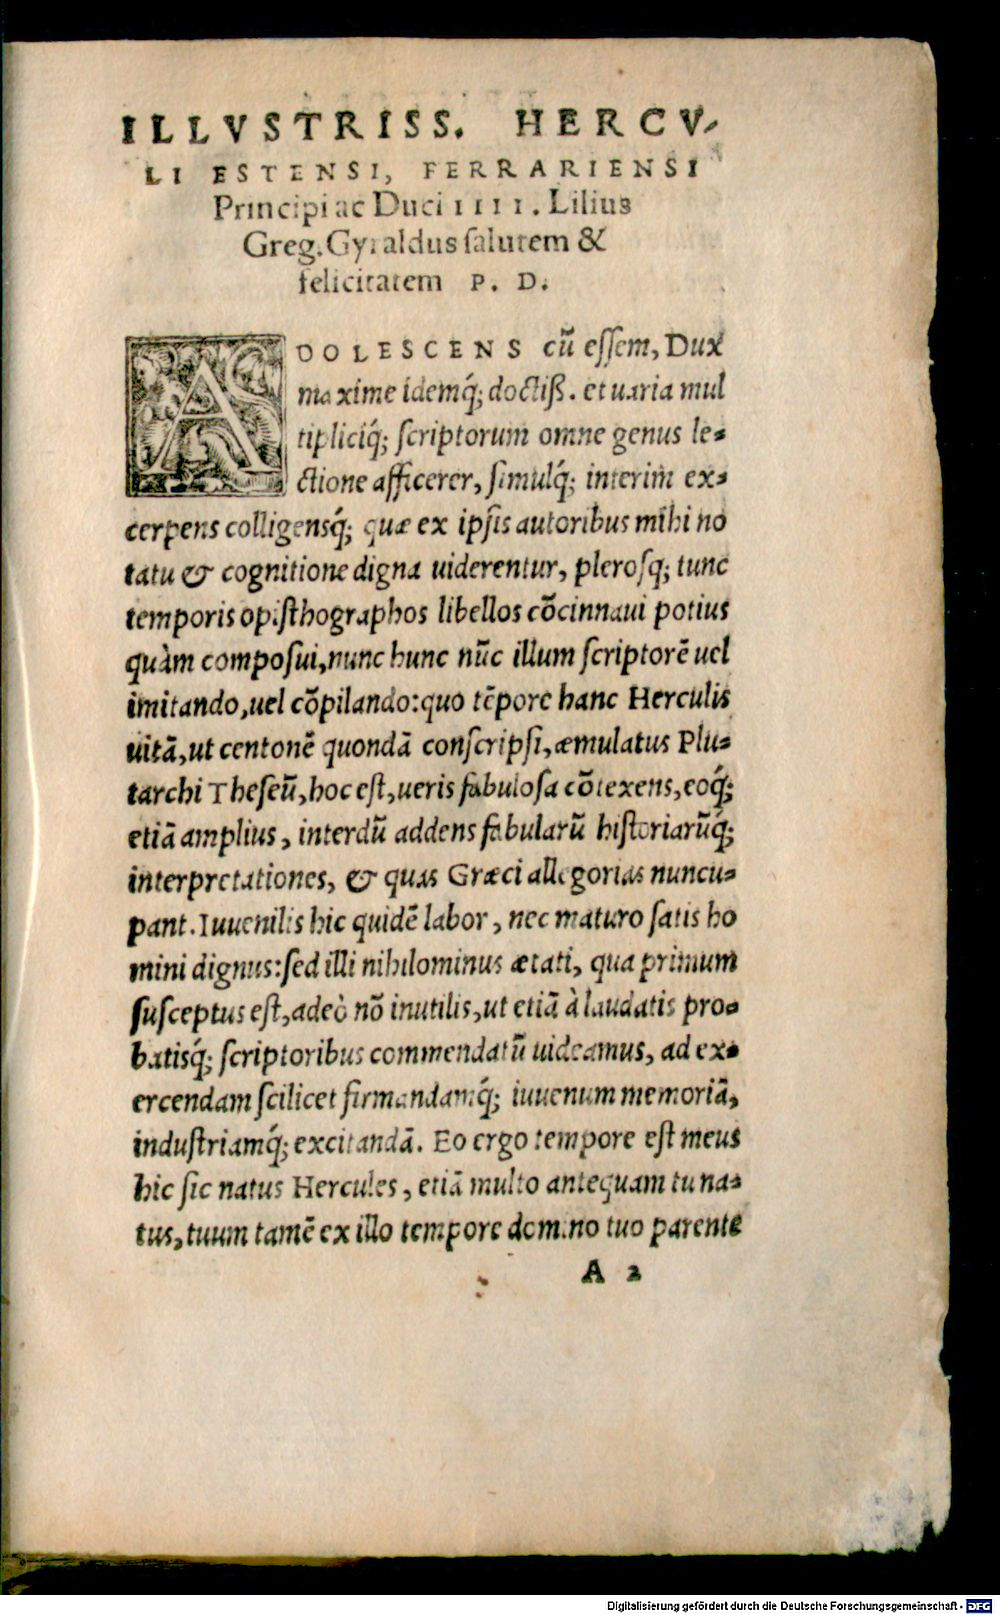 ILLVSTRISS. HERCV-
LI ESTENSI, FERRARIENSI
Principi ac Duci IIII. Lilius
Greg. Gyraldus salutem &
felicitatem P. D.
ADOLESCENS cū essem, Dux
maxime idemq́; doctiß. et uaria mul
tipliciq́; scriptorum omne genus le-
ctione afficerer, simulq́; interim ex-
cerpens colligensq́; quæ ex ipsis autoribus mihi no
tatu & cognitione digna uiderentur, plerosq; tunc
temporis opisthographos libellos cōcinnaui potius
quàm composui, nunc hunc nūc illum scriptorē uel
imitando, uel cōpilando: quo tēpore hanc Herculis
uitā, ut centonē quondā conscripsi, æmulatus Plu-
tarchi Theseū, hoc est, ueris fabulosa cōtexens, eoq́;
etiā amplius, interdū addens fabularū historiarūq́;
interpretationes, & quas Græci allegorias nuncu-
pant. Iuuenilis hic quidē labor, nec maturo satis ho
mini dignus: sed illi nihilominus ætati, qua primum
susceptus est, adeò nō inutilis, ut etiā à laudatis pro-
batisq́; scriptoribus commendatū uideamus, ad ex-
ercendam scilicet firmandamq́; iuuenum memoriā,
industriamq́; excitandā. Eo ergo tempore est meus
hic sic natus Hercules, etiā multo antequam tu na-
tus, tuum tamē ex illo tempore domino tuo parente
A 2
Digitalisierung gefördert durch die Deutsche Forschungsgemeinschaft - DFG